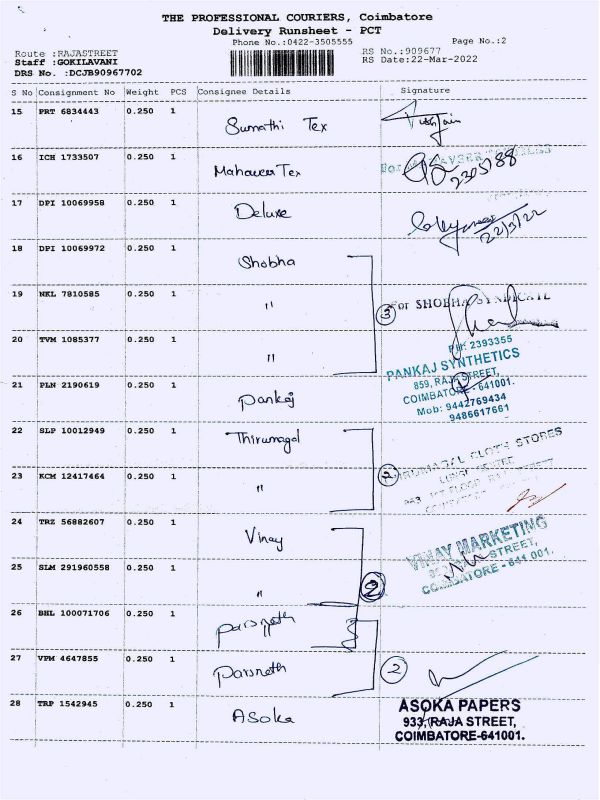 THE PROFESSIONAL COURIERS, Coimbatore
Delivery Runsheet - PCT
Phone No.:0422-3505555
Page No.:2
Route :RAJASTREET
Staff :GOKILAVANI
DRS No. :DCJB90967702
RS No.:909677
RS Date:22-Mar-2022
S No Consignment No Weight PCS Consignee Details Signature
15 PRT 6834443 0.250 1 Sumathi Tex
16 ICH 1733507 0.250 1 Mahaveer Tex
2305788
17 DPI 10069958 0.250 1 Deluxe
22/3/22
18 DPI 10069972 0.250 1 Shobha
19 NKL 7810585 0.250 1 "
3
For SHOBHA SYNDICATE
20 TVM 1085377 0.250 1 "
PH: 2393355
PANKAJ SYNTHETICS
859, RAJA STREET,
COIMBATORE - 641001.
Mob: 9442769434
9486617661
21 PLN 2190619 0.250 1 Pankaj
22 SLP 10012949 0.250 1 Thirumagal
2
CLOTH STORES
23 KCM 12417464 0.250 1 "
24 TRZ 56882607 0.250 1 Vinay
VINAY MARKETING
STREET,
COIMBATORE - 641 001.
25 SLM 291960558 0.250 1 "
2
26 BHL 100071706 0.250 1 Parsnath
27 VPM 4647855 0.250 1 Parsnath
2
28 TRP 1542945 0.250 1 ASoka
ASOKA PAPERS
933, RAJA STREET,
COIMBATORE-641001.